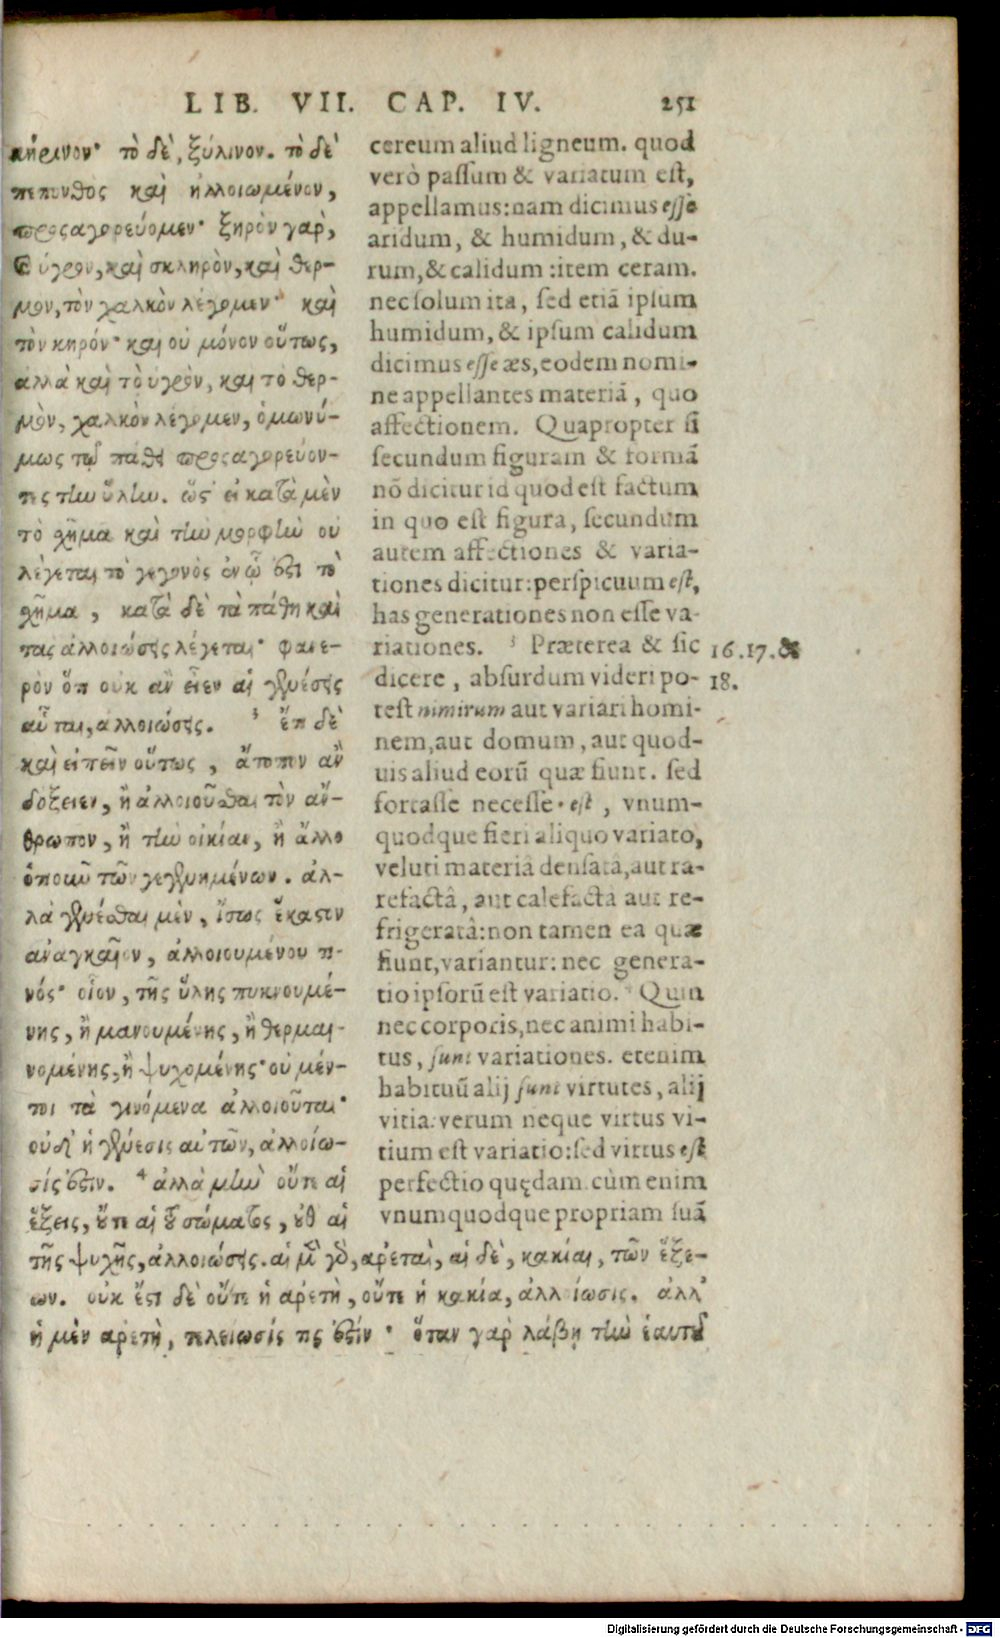 LIB. VII. CAP. IV. 251
κήρινον· τὸ δὲ, ξύλινον. τὸ δὲ
πεπονθὸς καὶ ἠλλοιωμένον,
προσαγορεύομεν· ξηρὸν γὰρ,
καὶ ὑγρὸν, καὶ σκληρὸν, καὶ θερ-
μὸν, τὸν χαλκὸν λέγομεν· καὶ
τὸν κηρόν· καὶ οὐ μόνον οὕτως,
ἀλλὰ καὶ τὸ ὑγρὸν, καὶ τὸ θερ-
μὸν, χαλκὸν λέγομεν, ὁμωνύ-
μως τῷ πάθει προσαγορεύον-
τες τὴν ὕλην. ὥστ' εἰ κατὰ μὲν
τὸ σχῆμα καὶ τὴν μορφὴν οὐ
λέγεται τὸ γεγονὸς ἐν ᾧ ἐστι τὸ
σχῆμα, κατὰ δὲ τὰ πάθη καὶ
τὰς ἀλλοιώσεις λέγεται· φανε-
ρὸν ὅτι οὐκ ἂν εἶεν αἱ γενέσεις
αὗται, ἀλλοιώσεις. ³ ἔτι δὲ
καὶ εἰπεῖν οὕτως, ἄτοπον ἂν
δόξειεν, ἢ ἀλλοιοῦσθαι τὸν ἄν-
θρωπον, ἢ τὴν οἰκίαν, ἢ ἄλλο
ὁποιοῦν τῶν γεγενημένων. ἀλ-
λὰ γενέσθαι μὲν, ἴσως ἕκαστον
ἀναγκαῖον, ἀλλοιουμένου τι-
νός· οἷον, τῆς ὕλης πυκνουμέ-
νης, ἢ μανουμένης, ἢ θερμαι-
νομένης, ἢ ψυχομένης· οὐ μέν-
τοι τὰ γινόμενα ἀλλοιοῦται·
οὐδ' ἡ γένεσις αὐτῶν, ἀλλοίω-
σίς ἐστιν. ⁴ ἀλλὰ μὴν οὔτε αἱ
ἕξεις, οὔτε αἱ τοῦ σώματος, οὔθ' αἱ
τῆς ψυχῆς, ἀλλοιώσεις. αἱ μὲν γὰρ, ἀρεταὶ, αἱ δὲ, κακίαι, τῶν ἕξε-
ων. οὐκ ἔστι δὲ οὔτε ἡ ἀρετὴ, οὔτε ἡ κακία, ἀλλοίωσις. ἀλλ'
ἡ μὲν ἀρετὴ, τελείωσίς τις ἐστίν· ὅταν γὰρ λάβῃ τὴν ἑαυτοῦ
cereum aliud ligneum. quod
verò passum & variatum est,
appellamus: nam dicimus esse
aridum, & humidum, & du-
rum, & calidum: item ceram.
nec solum ita, sed etiã ipsum
humidum, & ipsum calidum
dicimus esse æs, eodem nomi-
ne appellantes materiã, quo
affectionem. Quapropter si
secundum figuram & formã
nõ dicitur id quod est factum
in quo est figura, secundum
autem affectiones & varia-
tiones dicitur: perspicuum est,
has generationes non esse va-
riationes. ³ Præterea & sic
dicere, absurdum videri po-
test nimirum aut variari homi-
nem, aut domum, aut quod-
uis aliud eorũ quæ fiunt. sed
fortasse necesse est, vnum-
quodque fieri aliquo variato,
veluti materiâ densatâ, aut ra-
refactâ, aut calefacta aut re-
frigeratâ: non tamen ea quæ
fiunt, variantur: nec genera-
tio ipsorũ est variatio. ⁴ Quin
nec corporis, nec animi habi-
tus, sunt variationes. etenim
habituũ alij sunt virtutes, alij
vitia: verum neque virtus vi-
tium est variatio: sed virtus est
perfectio quędam. cùm enim
vnumquodque propriam suã
16.17. &
18.
Digitalisierung gefördert durch die Deutsche Forschungsgemeinschaft - DFG